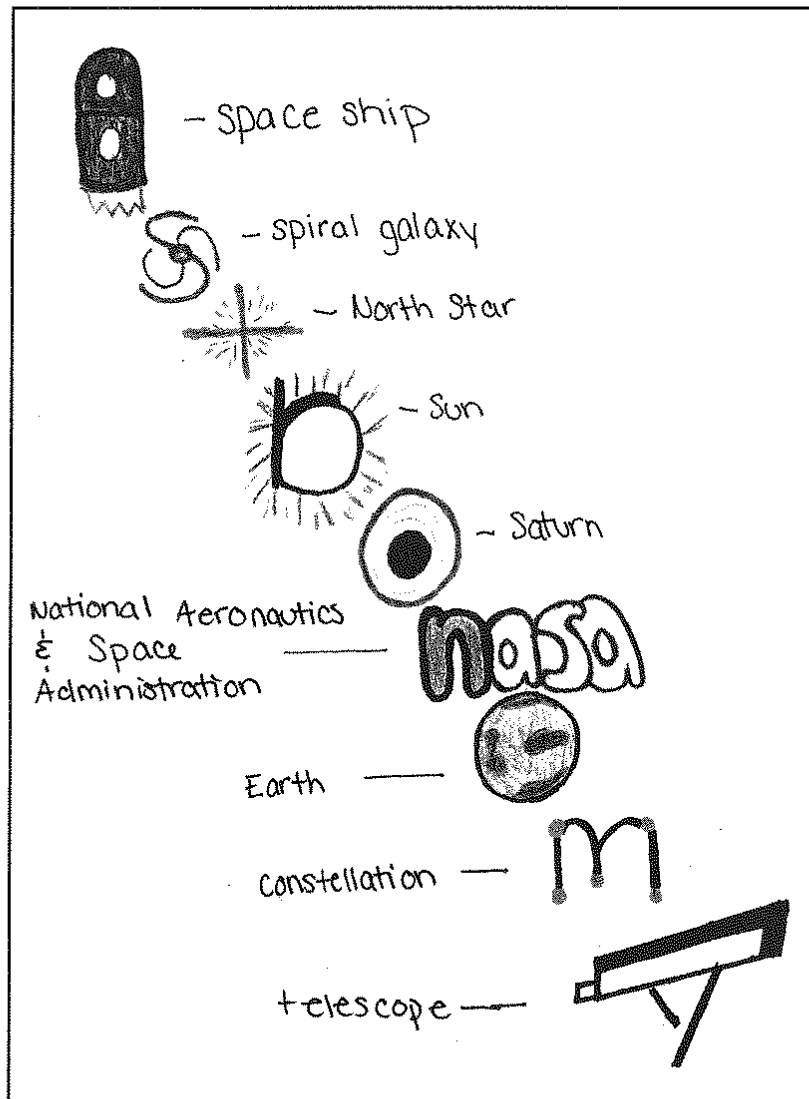 - space ship
- spiral galaxy
- North Star
- Sun
- Saturn
National Aeronautics
& Space
Administration
nasa
Earth
constellation
telescope